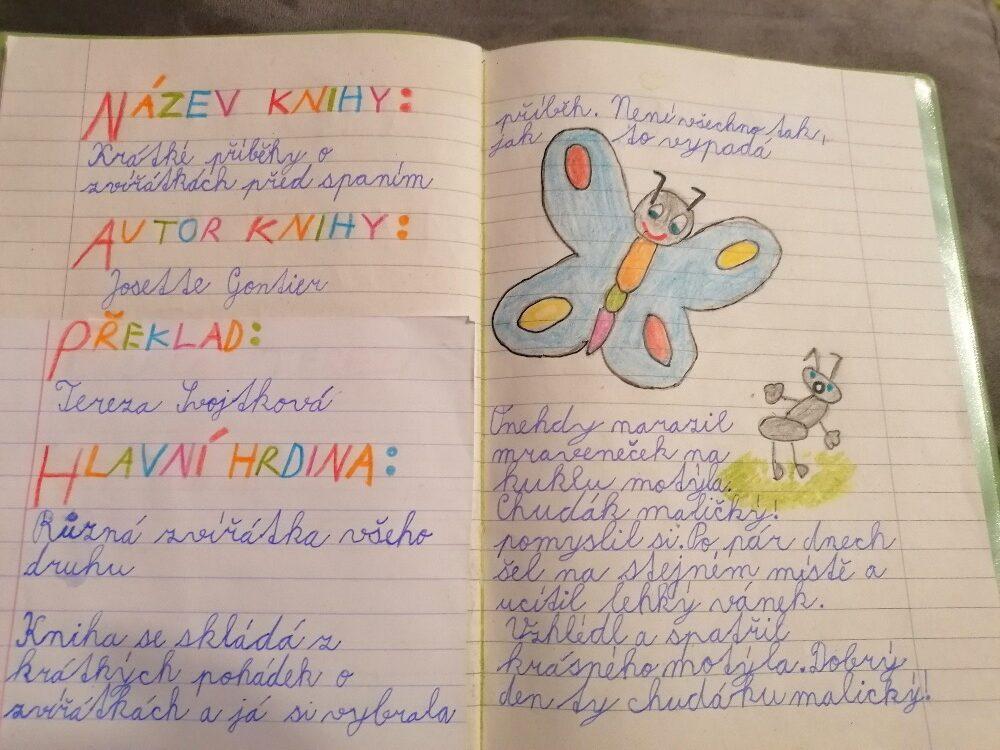 NÁZEV KNIHY:
Krátké příběhy o
zvířátkách před spaním
AUTOR KNIHY:
Josette Gontier
PŘEKLAD:
Tereza Svojtková
HLAVNÍ HRDINA:
Různá zvířátka všeho
druhu
Kniha se skládá z
krátkých pohádek o
zvířátkách a já si vybrala
příběh. Není všechno tak,
jak to vypadá
Onehdy narazil
mraveneček na
kuklu motýla.
Chudák maličký!
pomyslil si. Po pár dnech
šel na stejném místě a
ucítil lehký vánek.
Vzhlédl a spatřil
krásného motýla. Dobrý
den ty chudáku malický!